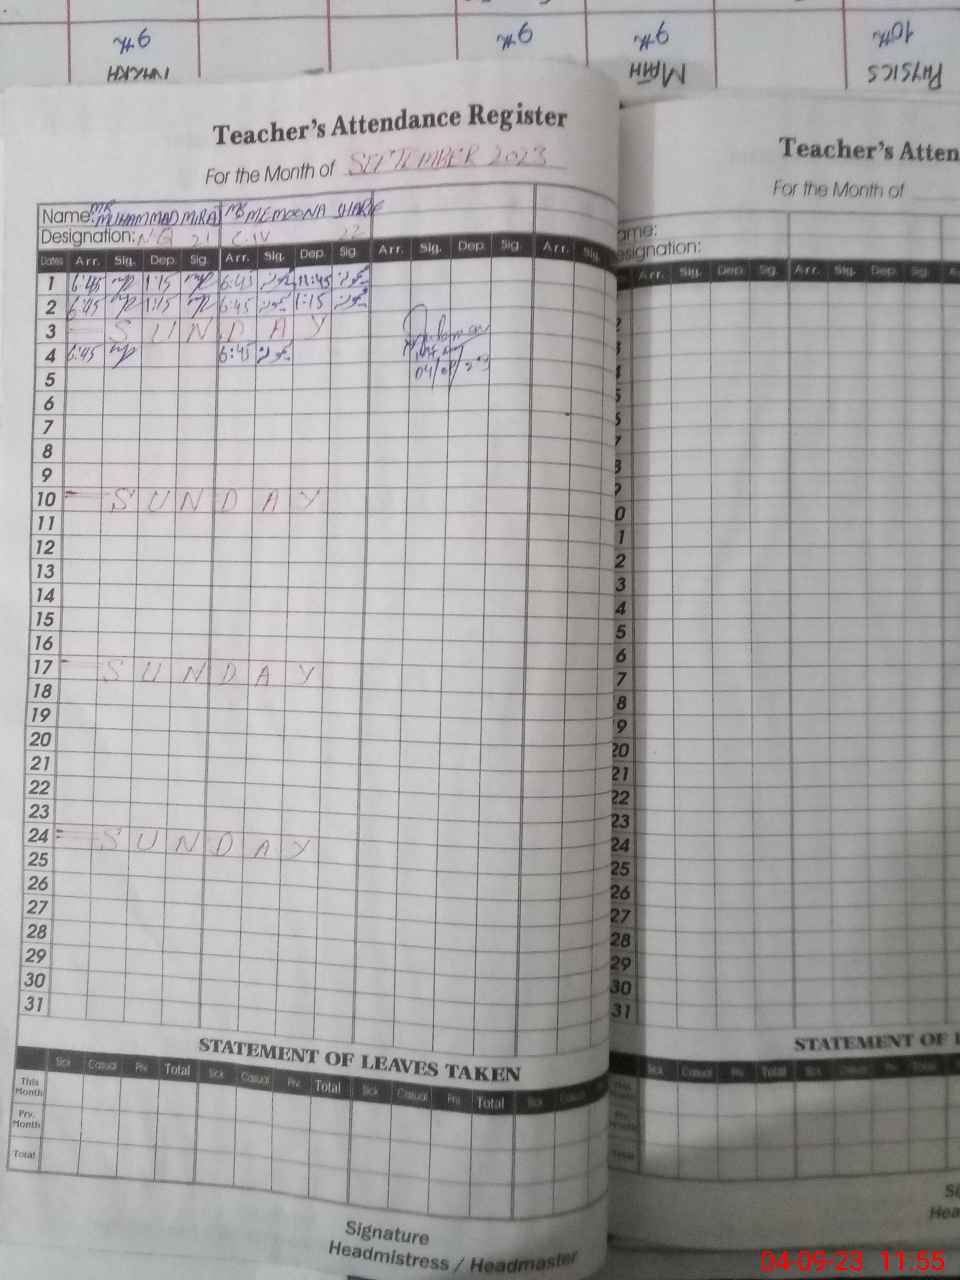 9th 9th 9th 10th
MATH PHYSICS
Teacher's Attendance Register
For the Month of SEPTEMBER 2023
Name: MR MUHAMMAD MIRAJ MS MEMOONA SHARIF
Designation: N.Q 21 C.IV 22
Dates Arr. Sig. Dep. Sig. Arr. Sig. Dep. Sig. Arr. Sig. Dep. Sig. Arr. Sig.
1 6:45 1:15 6:45 11:45
2 6:45 1:15 6:45 1:15
3 SUNDAY
4 6:45 6:45
5
6
7
8
9
10 SUNDAY
11
12
13
14
15
16
17 SUNDAY
18
19
20
21
22
23
24 SUNDAY
25
26
27
28
29
30
31
STATEMENT OF LEAVES TAKEN
Sick Casual Prv. Total Sick Casual Prv. Total Sick Casual Prv. Total Sick
This Month
Prv. Month
Total
Signature
Headmistress / Headmaster
Teacher's Atten
For the Month of
ame:
esignation:
Arr. Sig. Dep. Sig. Arr. Sig. Dep. Sig.
2
3
4
5
6
7
8
9
0
1
2
3
4
5
6
7
8
9
20
21
22
23
24
25
26
27
28
29
30
31
STATEMENT OF L
Sick Casual Prv. Total Sick Casual Prv. Total
This Month
Prv. Month
Total
Si
Hea
04-09-23 11:55